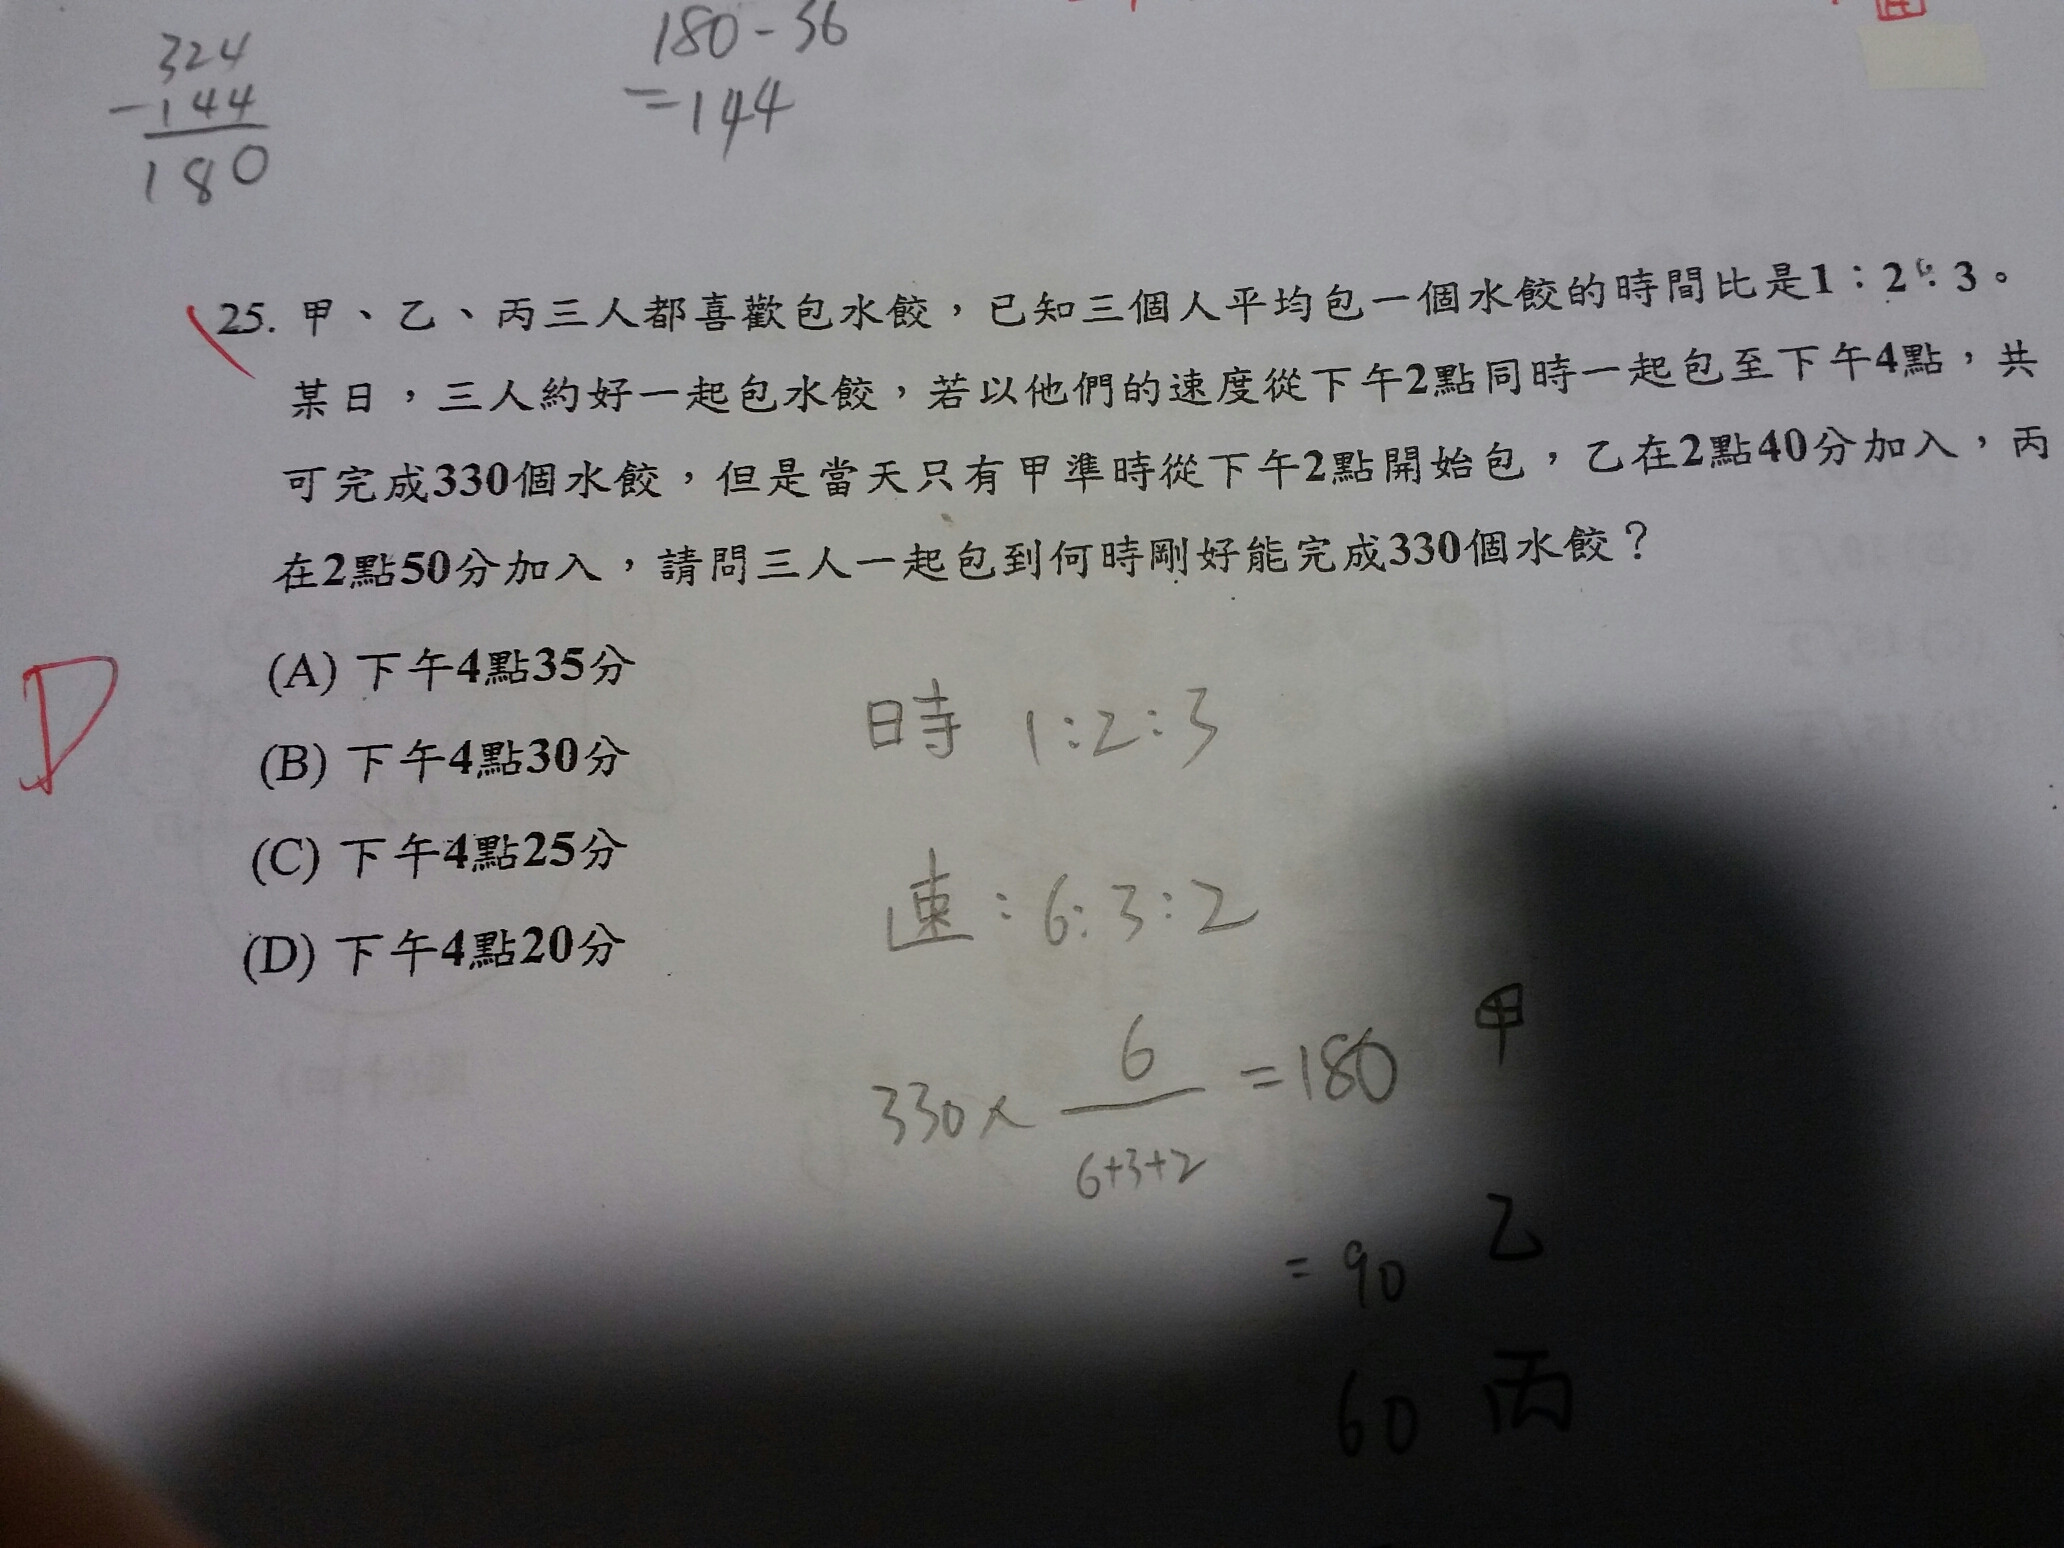 324
-144
180
180-36
=144
25. 甲、乙、丙三人都喜歡包水餃，已知三個人平均包一個水餃的時間比是1：2：3。
某日，三人約好一起包水餃，若以他們的速度從下午2點同時一起包至下午4點，共
可完成330個水餃，但是當天只有甲準時從下午2點開始包，乙在2點40分加入，丙
在2點50分加入，請問三人一起包到何時剛好能完成330個水餃？
(A) 下午4點35分
(B) 下午4點30分
(C) 下午4點25分
(D) 下午4點20分
D
時 1:2:3
速：6:3:2
330× 6/(6+3+2) =180 甲
=90 乙
60 丙